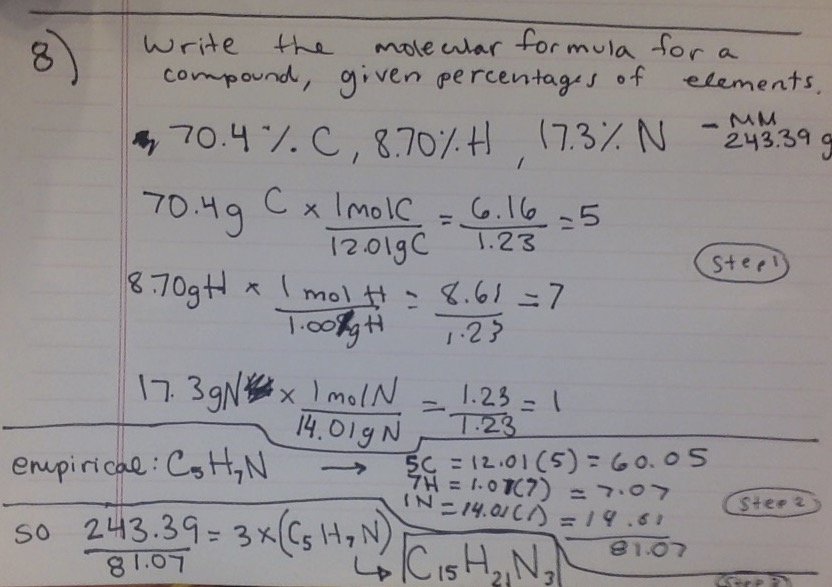 8) Write the molecular formula for a
compound, given percentages of elements.
70.4% C, 8.70% H, 17.3% N - MM 243.39 g
70.4g C x 1molC / 12.01gC = 6.16 / 1.23 = 5
Step 1
8.70gH x 1 mol H / 1.008gH = 8.61 / 1.23 = 7
17.3gN x 1molN / 14.01gN = 1.23 / 1.23 = 1
empirical: C5H7N → 5C = 12.01(5) = 60.05
7H = 1.01(7) = 7.07
1N = 14.01(1) = 14.01
Step 2
81.07
so 243.39 / 81.07 = 3 x (C5H7N)
↳ C15H21N3
Step 3